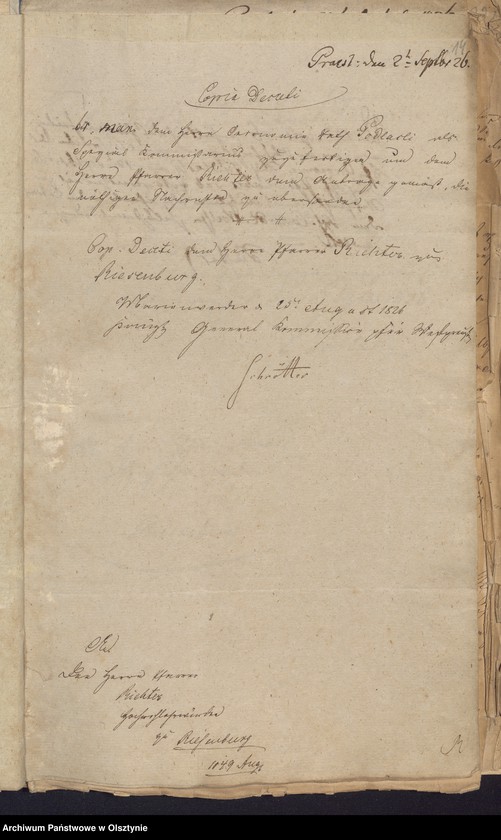 14
Praest: den 2t Septbr 26.
Copia Decreti
br. man. dem Herrn Oeconomie Rath Podlasli als
Special Kommissarius zuzufertigen um dem
Herrn Pfarrer Richter dem Antrage gemäß, die
nöthigen Nachrichten zu übersenden
Cop. Decreti dem Herrn Pfarrer Richter zu
Riesenburg.
Marienwerder d 25t August 1826
Königl. General Kommission für Westpreuß.
Schrötter
An
Den Herrn Pfarrer
Richter
Hochwohlehrwürden
zu Riesenburg
1149 Aug.
Archiwum Państwowe w Olsztynie